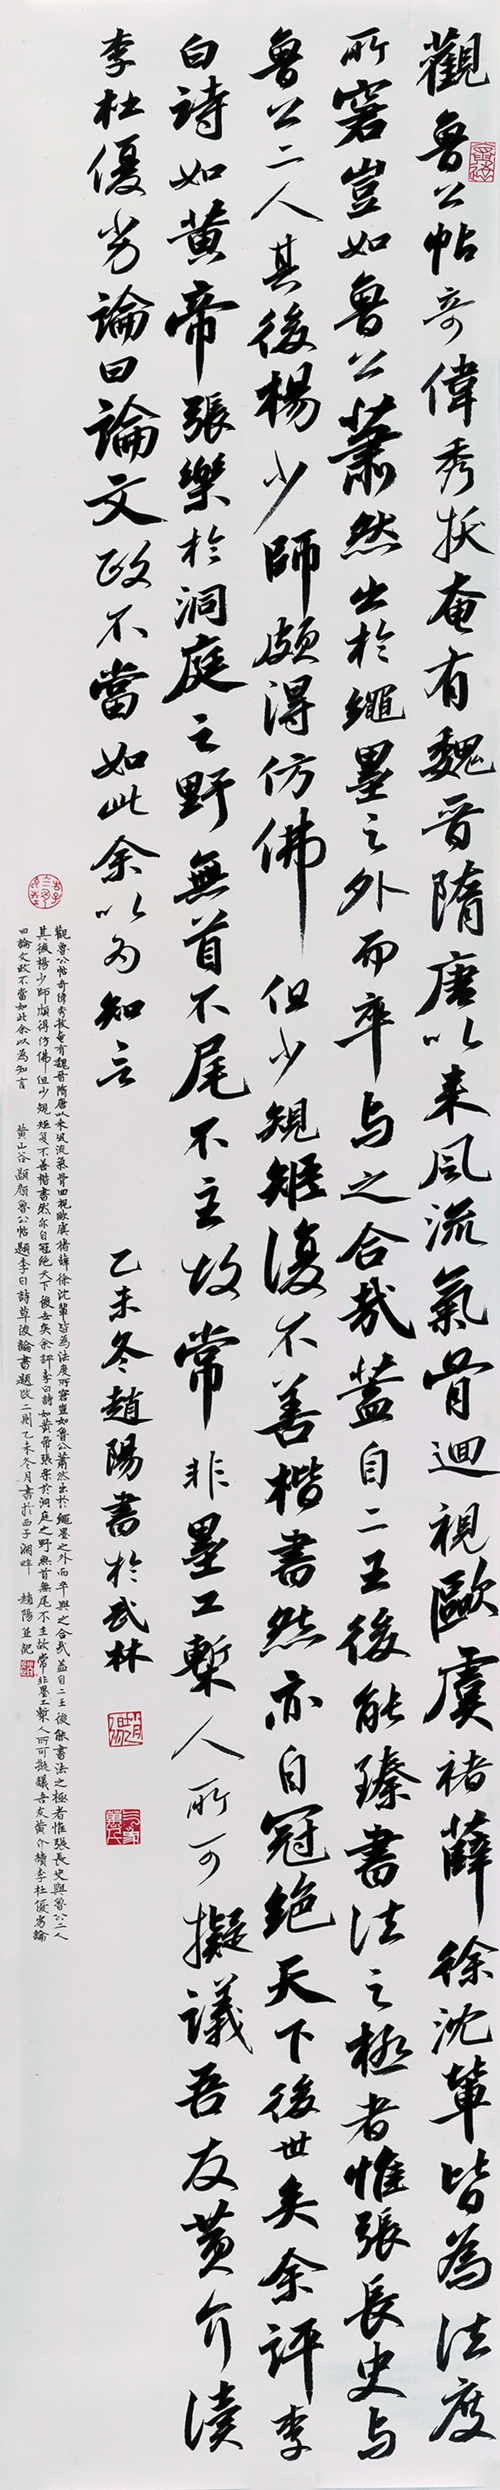 觀魯公帖奇偉秀拔奄有魏晉隋唐以来風流氣骨迴視歐虞褚薛徐沈輩皆為法度
所窘豈如魯公蕭然出於繩墨之外而卒与之合哉蓋自二王後能臻書法之極者惟張長史与
魯公二人其後楊少師頗得仿佛但少規矩復不善楷書然亦自冠絶天下後世矣余評李
白詩如黄帝張樂於洞庭之野無首不尾不主故常非墨工槧人所可擬議吾友黄介讀
李杜優劣論曰論文政不當如此余以為知言
乙未冬趙陽書於武林
觀魯公帖奇偉秀拔奄有魏晋隋唐以来風流氣骨回視歐虞褚薛徐沈輩皆為法度所窘豈如魯公蕭然出於繩墨之外而卒與之合哉蓋自二王後能書法之極者惟張長史與魯公二人
其後楊少師頗得仿佛但少規矩复不善楷書然亦自冠絶天下後世矣余評李白詩如黄帝張樂於洞庭之野無首無尾不主故常非墨工槧人所可擬議吾友黄介讀李杜優劣論
曰論文政不當如此余以為知言 黄山谷題顔魯公帖題李白詩草後論書題跋二則乙未冬月書於西子湖畔 趙陽並記